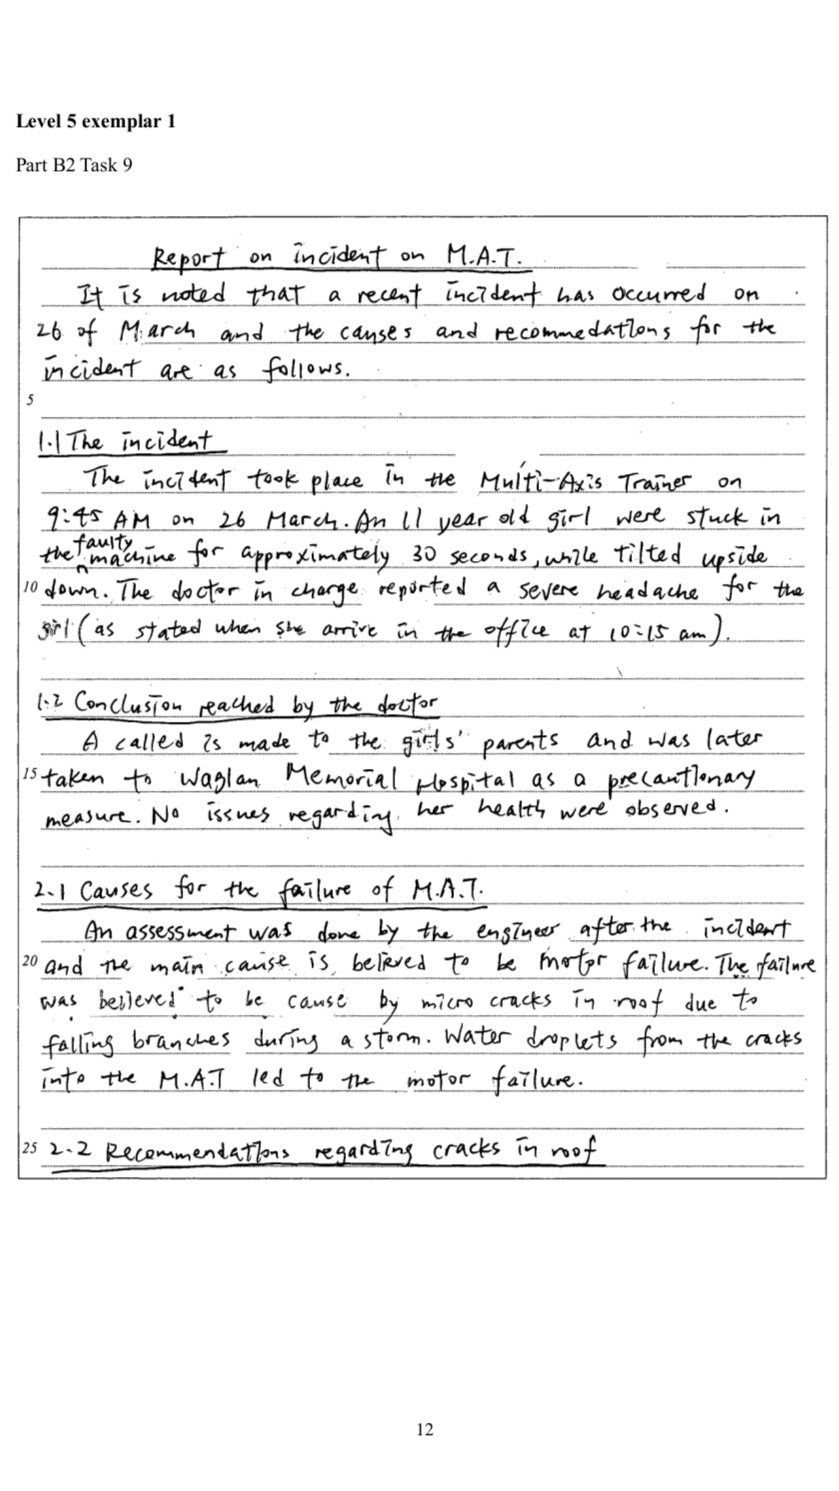 Level 5 exemplar 1
Part B2 Task 9
Report on incident on M.A.T.
It is noted that a recent incident has occurred on
26 of March and the causes and recommedations for the
incident are as follows.
5
1.1 The incident
The incident took place in the Multi-Axis Trainer on
9:45 AM on 26 March. An 11 year old girl were stuck in
the faulty machine for approximately 30 seconds, while tilted upside
10 down. The doctor in charge reported a severe headache for the
girl (as stated when she arrive in the office at 10:15 am).
1.2 Conclusion reached by the doctor
A called is made to the girls' parents and was later
15 taken to Waglan Memorial Hospital as a precautionary
measure. No issues regarding her health were observed.
2.1 Causes for the failure of M.A.T.
An assessment was done by the engineer after the incident
20 and the main cause is believed to be motor failure. The failure
was believed to be cause by micro cracks in roof due to
falling branches during a storm. Water droplets from the cracks
into the M.A.T led to the motor failure.
25 2.2 Recommendations regarding cracks in roof
12